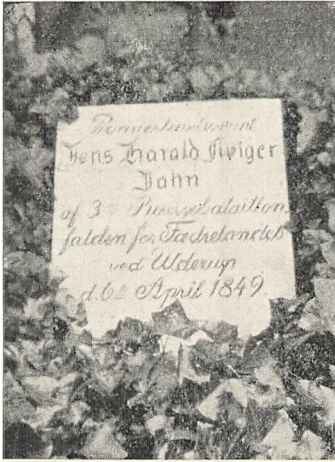 Premierlieutenant
Jens Harald Fibiger
Jahn
af 3die Reservebataillon
falden for Fædrelandet
ved Ulderup
d. 6te April 1849